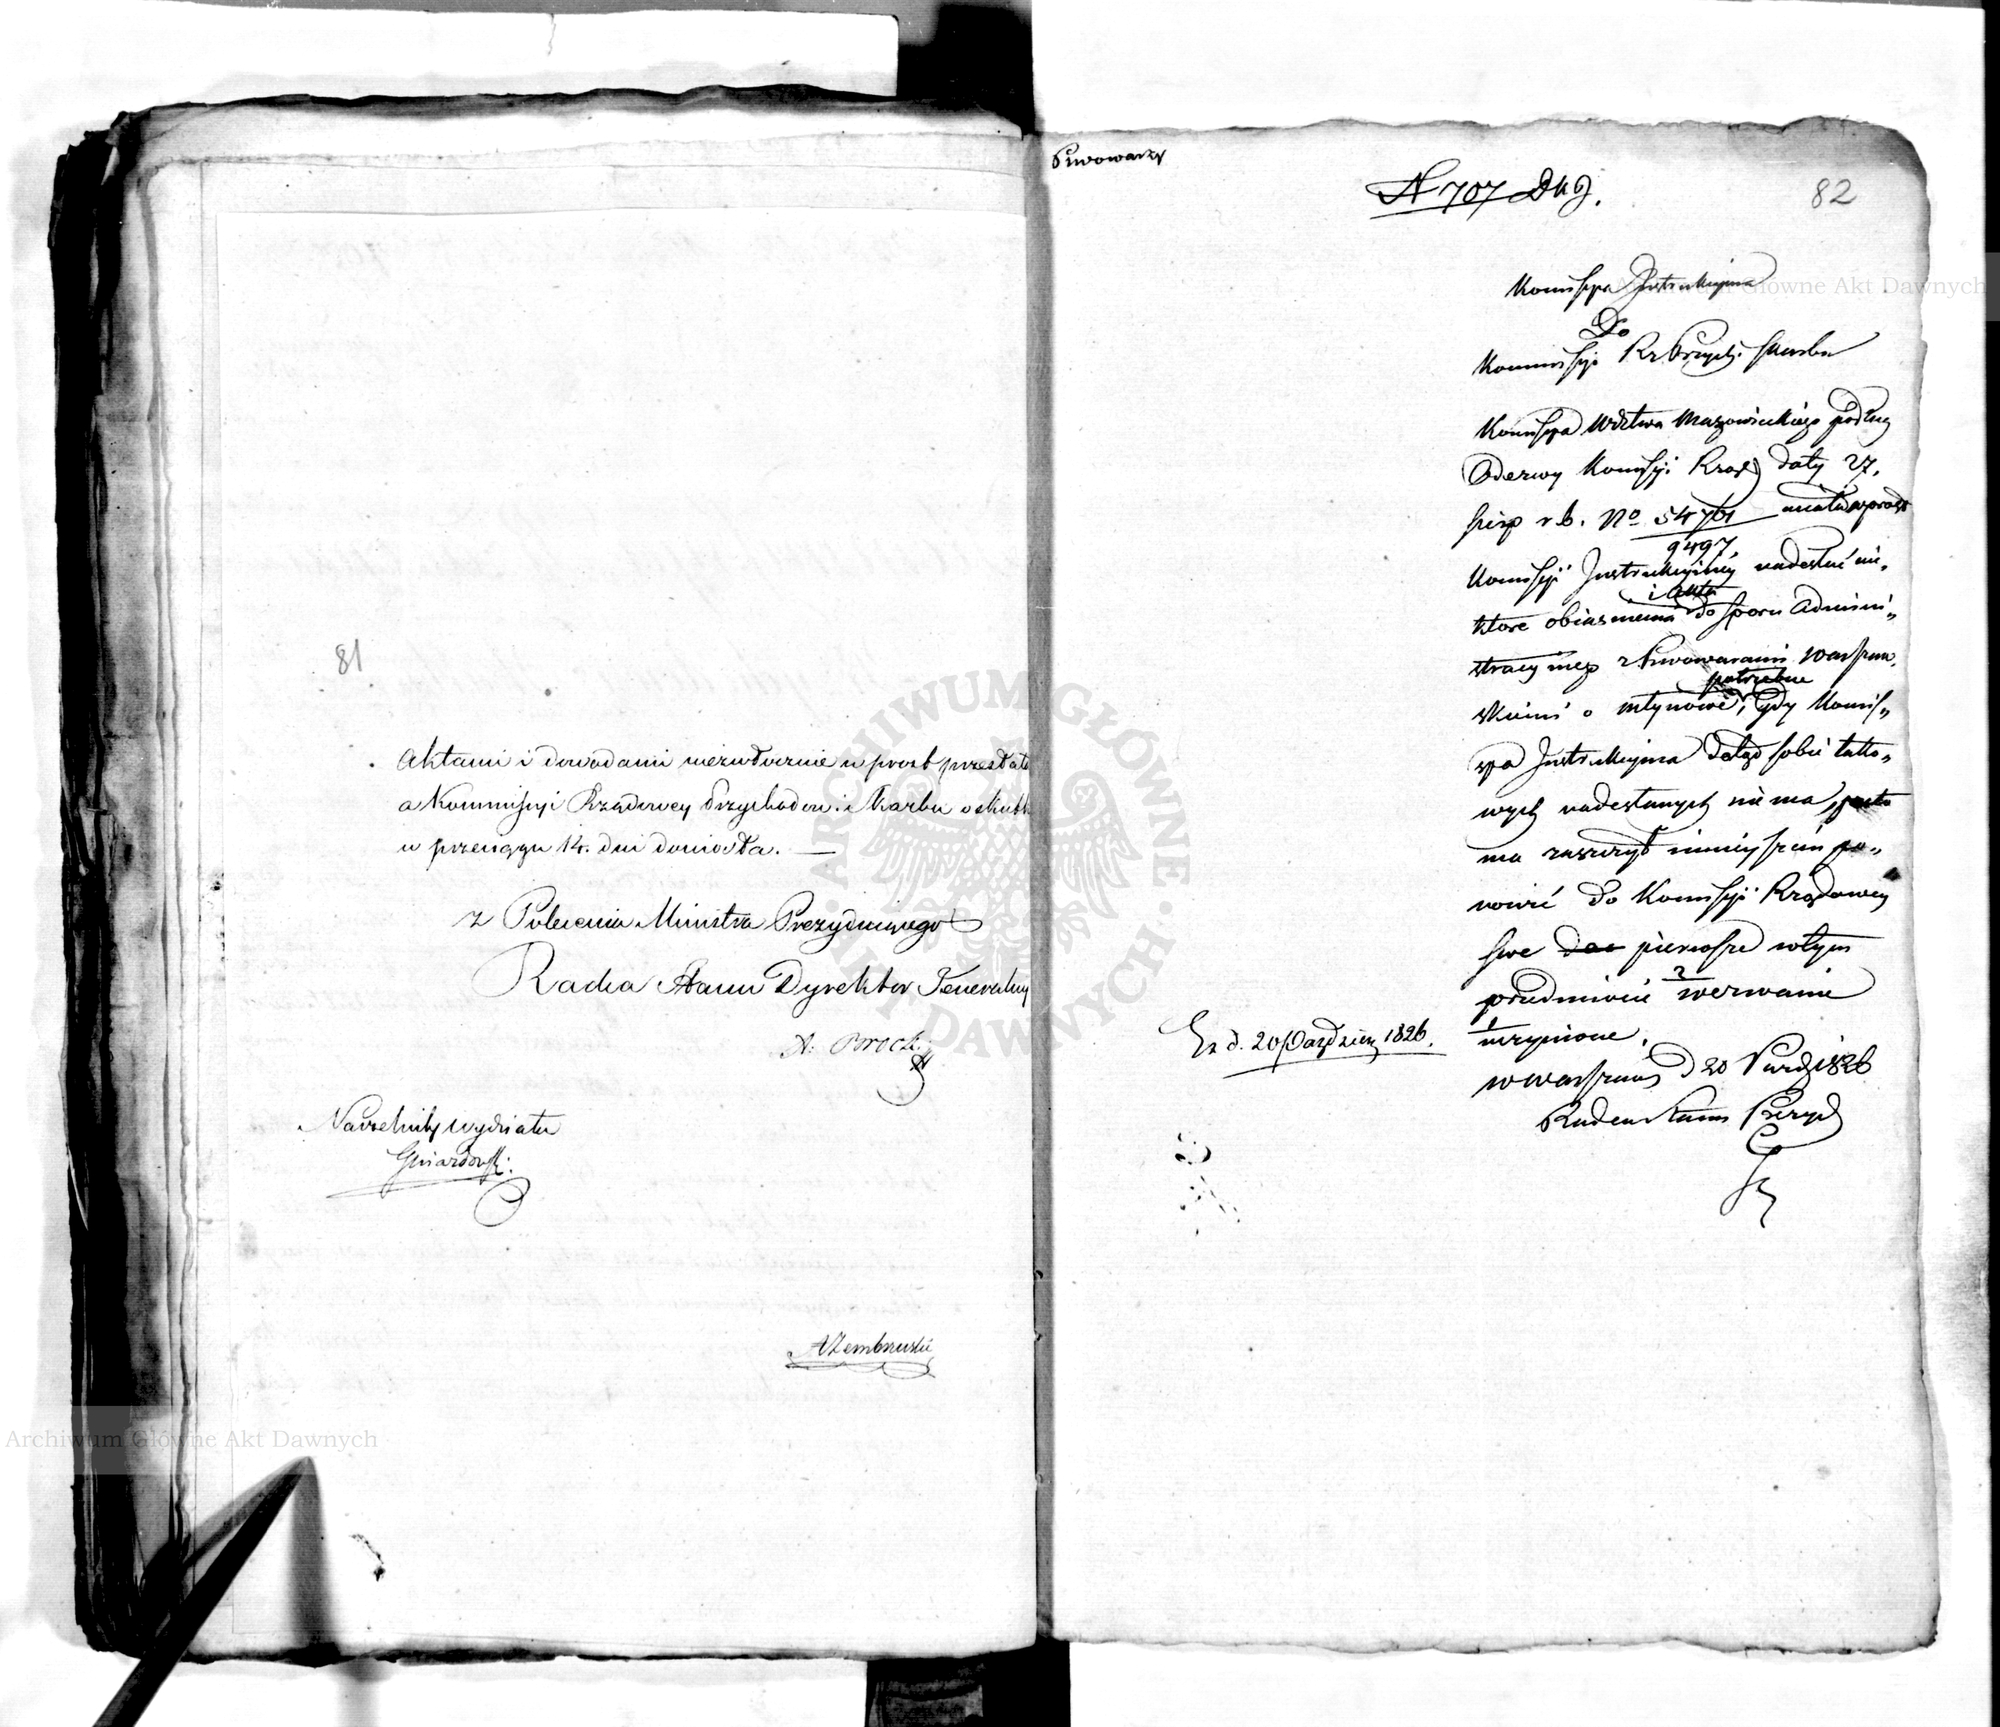 81
Aktami i dowodami niezwłocznie wprost przesłała
a Kommissyi Rządowey Przychodow i Skarbu o skutku
w przeciągu 14. dni doniosła. —
z Polecenia Ministra Prezyduiącego
Radca Stanu Dyrektor Jeneralny
Naczelnik wydziału
AZembrzuski
Piwowarzy
N 707 DKJ.
82
Komissya Instrukcyina
Do
Kommissyi Rz Przych: Skarbu
Komissya Wdztwa Mazowieckiego podług
Odezwy Komissyi Rząd daty 27.
Sierp r b. No 54761 miała wprost
9497
Komissyi Instrukcyiney nadesłać nie-
i akta
które obiasnienia do sporu Admini„
stracyinego z Piwowarami Warszaw„
potrzebne
skiemi o młynowe, Gdy Komis„
sya Instrukcyina dotąd sobie tako„
wych nadesłanych nie ma, przeto
ma zaszczyt ninieyszém po„
nowić do Komissyi Rządowey
swe pierwsze w tym
przedmiocie wezwanie
uczynione.
w Warszawie d 20 Paździ 1826
Radca Stanu Prezyd
Ex d. 20 Październ 1826.
Archiwum Główne Akt Dawnych
Archiwum Główne Akt Dawnych
ARCHIWUM GŁÓWNE · AKT DAWNYCH ·